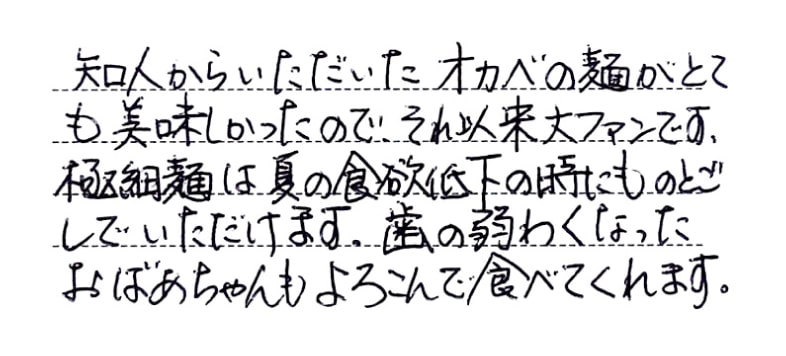 知人からいただいたオカベの麺がとて
も美味しかったので、それ以来大ファンです。
極細麺は夏の食欲低下の時にものどご
しでいただけます。歯の弱わくなった
おばあちゃんもよろこんで食べてくれます。